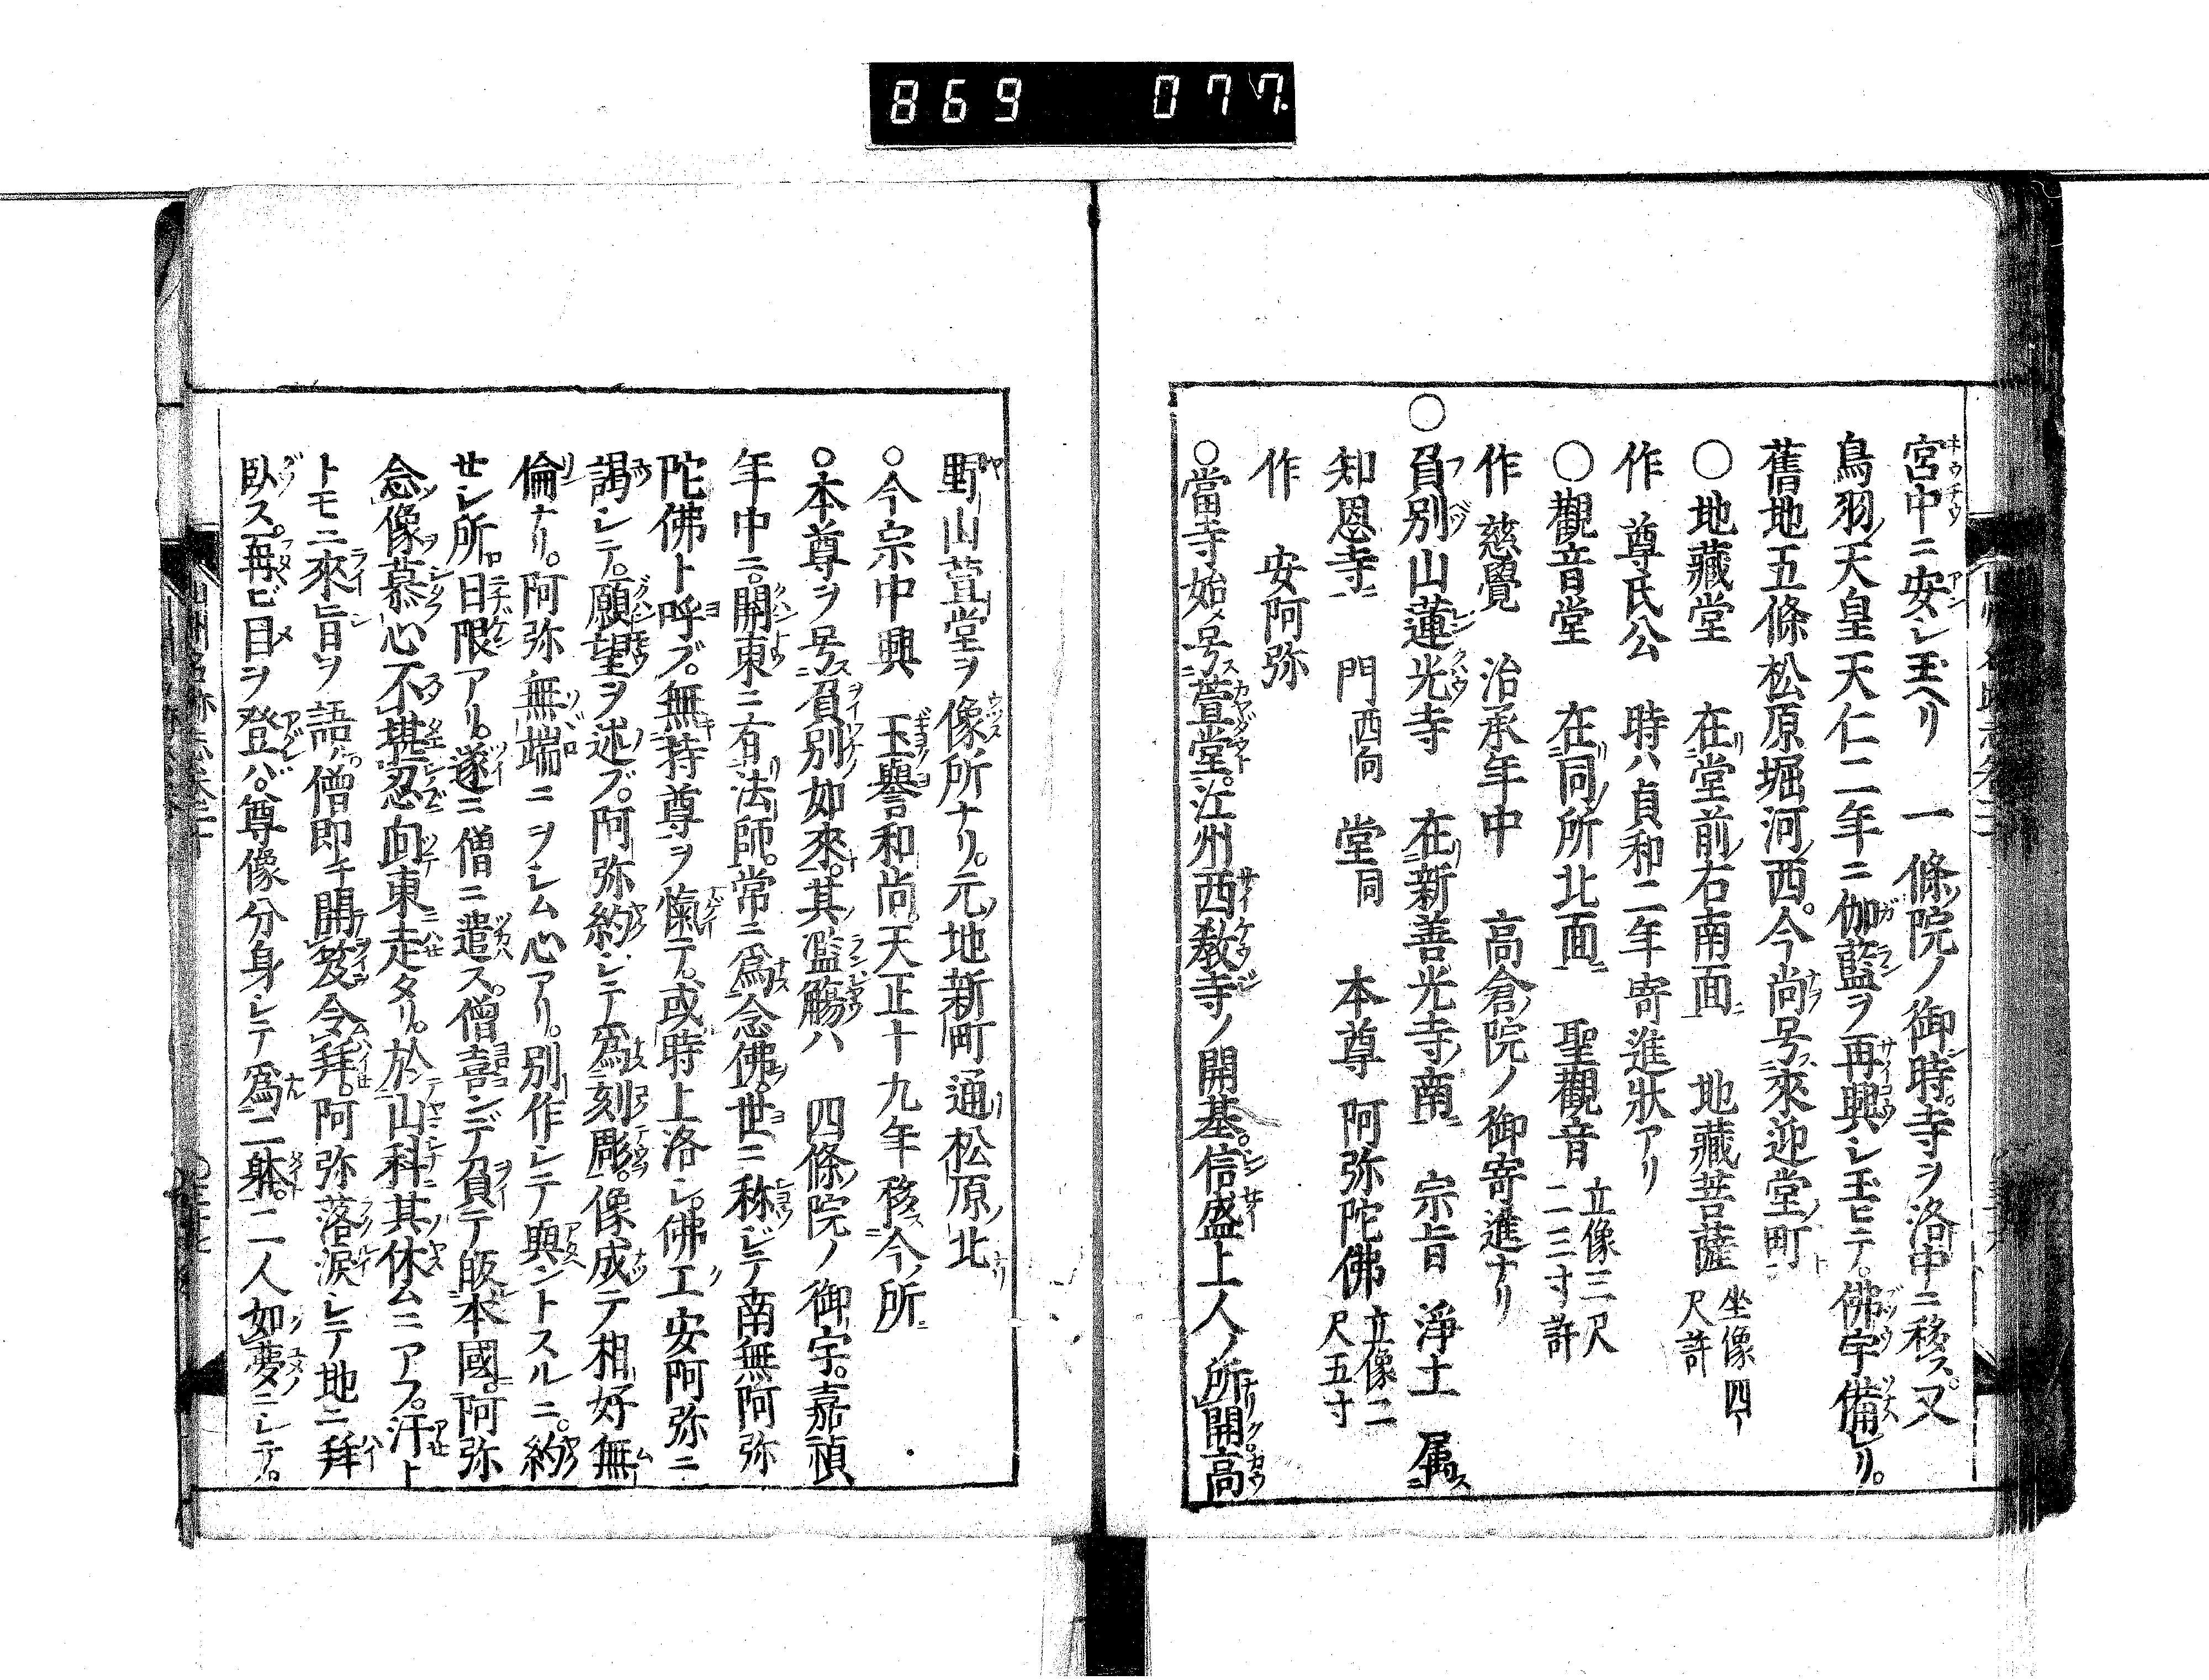 869 077
宮中ニ安シ玉ヘリ 一條院ノ御時寺ヲ洛中ニ移ス又
鳥羽ノ天皇天仁二年ニ伽藍ヲ再興シ玉ヒテ佛宇備レリ
舊地五條松原堀河ノ西今尚号ス來迎堂ノ町ト
○地藏堂 在リ堂前ノ右南面ニ 地藏菩薩 坐像四尺許
作 尊氏公 時ハ貞和二年寄進狀アリ
○觀音堂 在リ同所ノ北面ニ 聖觀音 立像三尺二三寸許
作 慈覺 治承年中 高倉ノ院ノ御寄進ナリ
○負別山蓮光寺 在リ新善光寺ノ南ニ 宗旨 淨土 属ス
知恩寺ニ 門西向 堂同 本尊 阿弥陀佛 立像二尺五寸
作 安阿弥
○當寺始メ号ス萱堂ト江州西教寺ノ開基信盛上人ノ所開高
野山萱堂ヲ像所ナリ元ノ地新町通リ松原ノ北
○今宗中興 玉譽和尚天正十九年移ス今ノ所ニ
○本尊ヲ号ス負別如來ト其ノ濫觴ハ 四條ノ院ノ御宇嘉禎
年中ニ開東ニ有リ法師常ニ爲ス念佛ヲ世ニ称シテ南無阿弥
陀佛ト呼ブ無キ持尊ヲ慯テ或時上洛シ佛工安阿弥ニ
謁シテ願望ヲ述ブ阿弥約シテ爲刻彫像成テ相好無
倫ナリ阿弥無端ニヲシム心アリ別作シテ與ントスルニ約
せシ所日限アリ遂ニ僧ニ遣ス僧喜ンデ負テ皈本國ニ阿弥
念像慕心不堪忍向東走タリ於山科其休ムニアフ汗ト
トモニ來旨ヲ語ル僧即チ開笈令拜阿弥落涙シテ地ニ拜
臥ス再ビ目ヲ登バ尊像分身シテ爲二躰ト二人如夢ニシテ